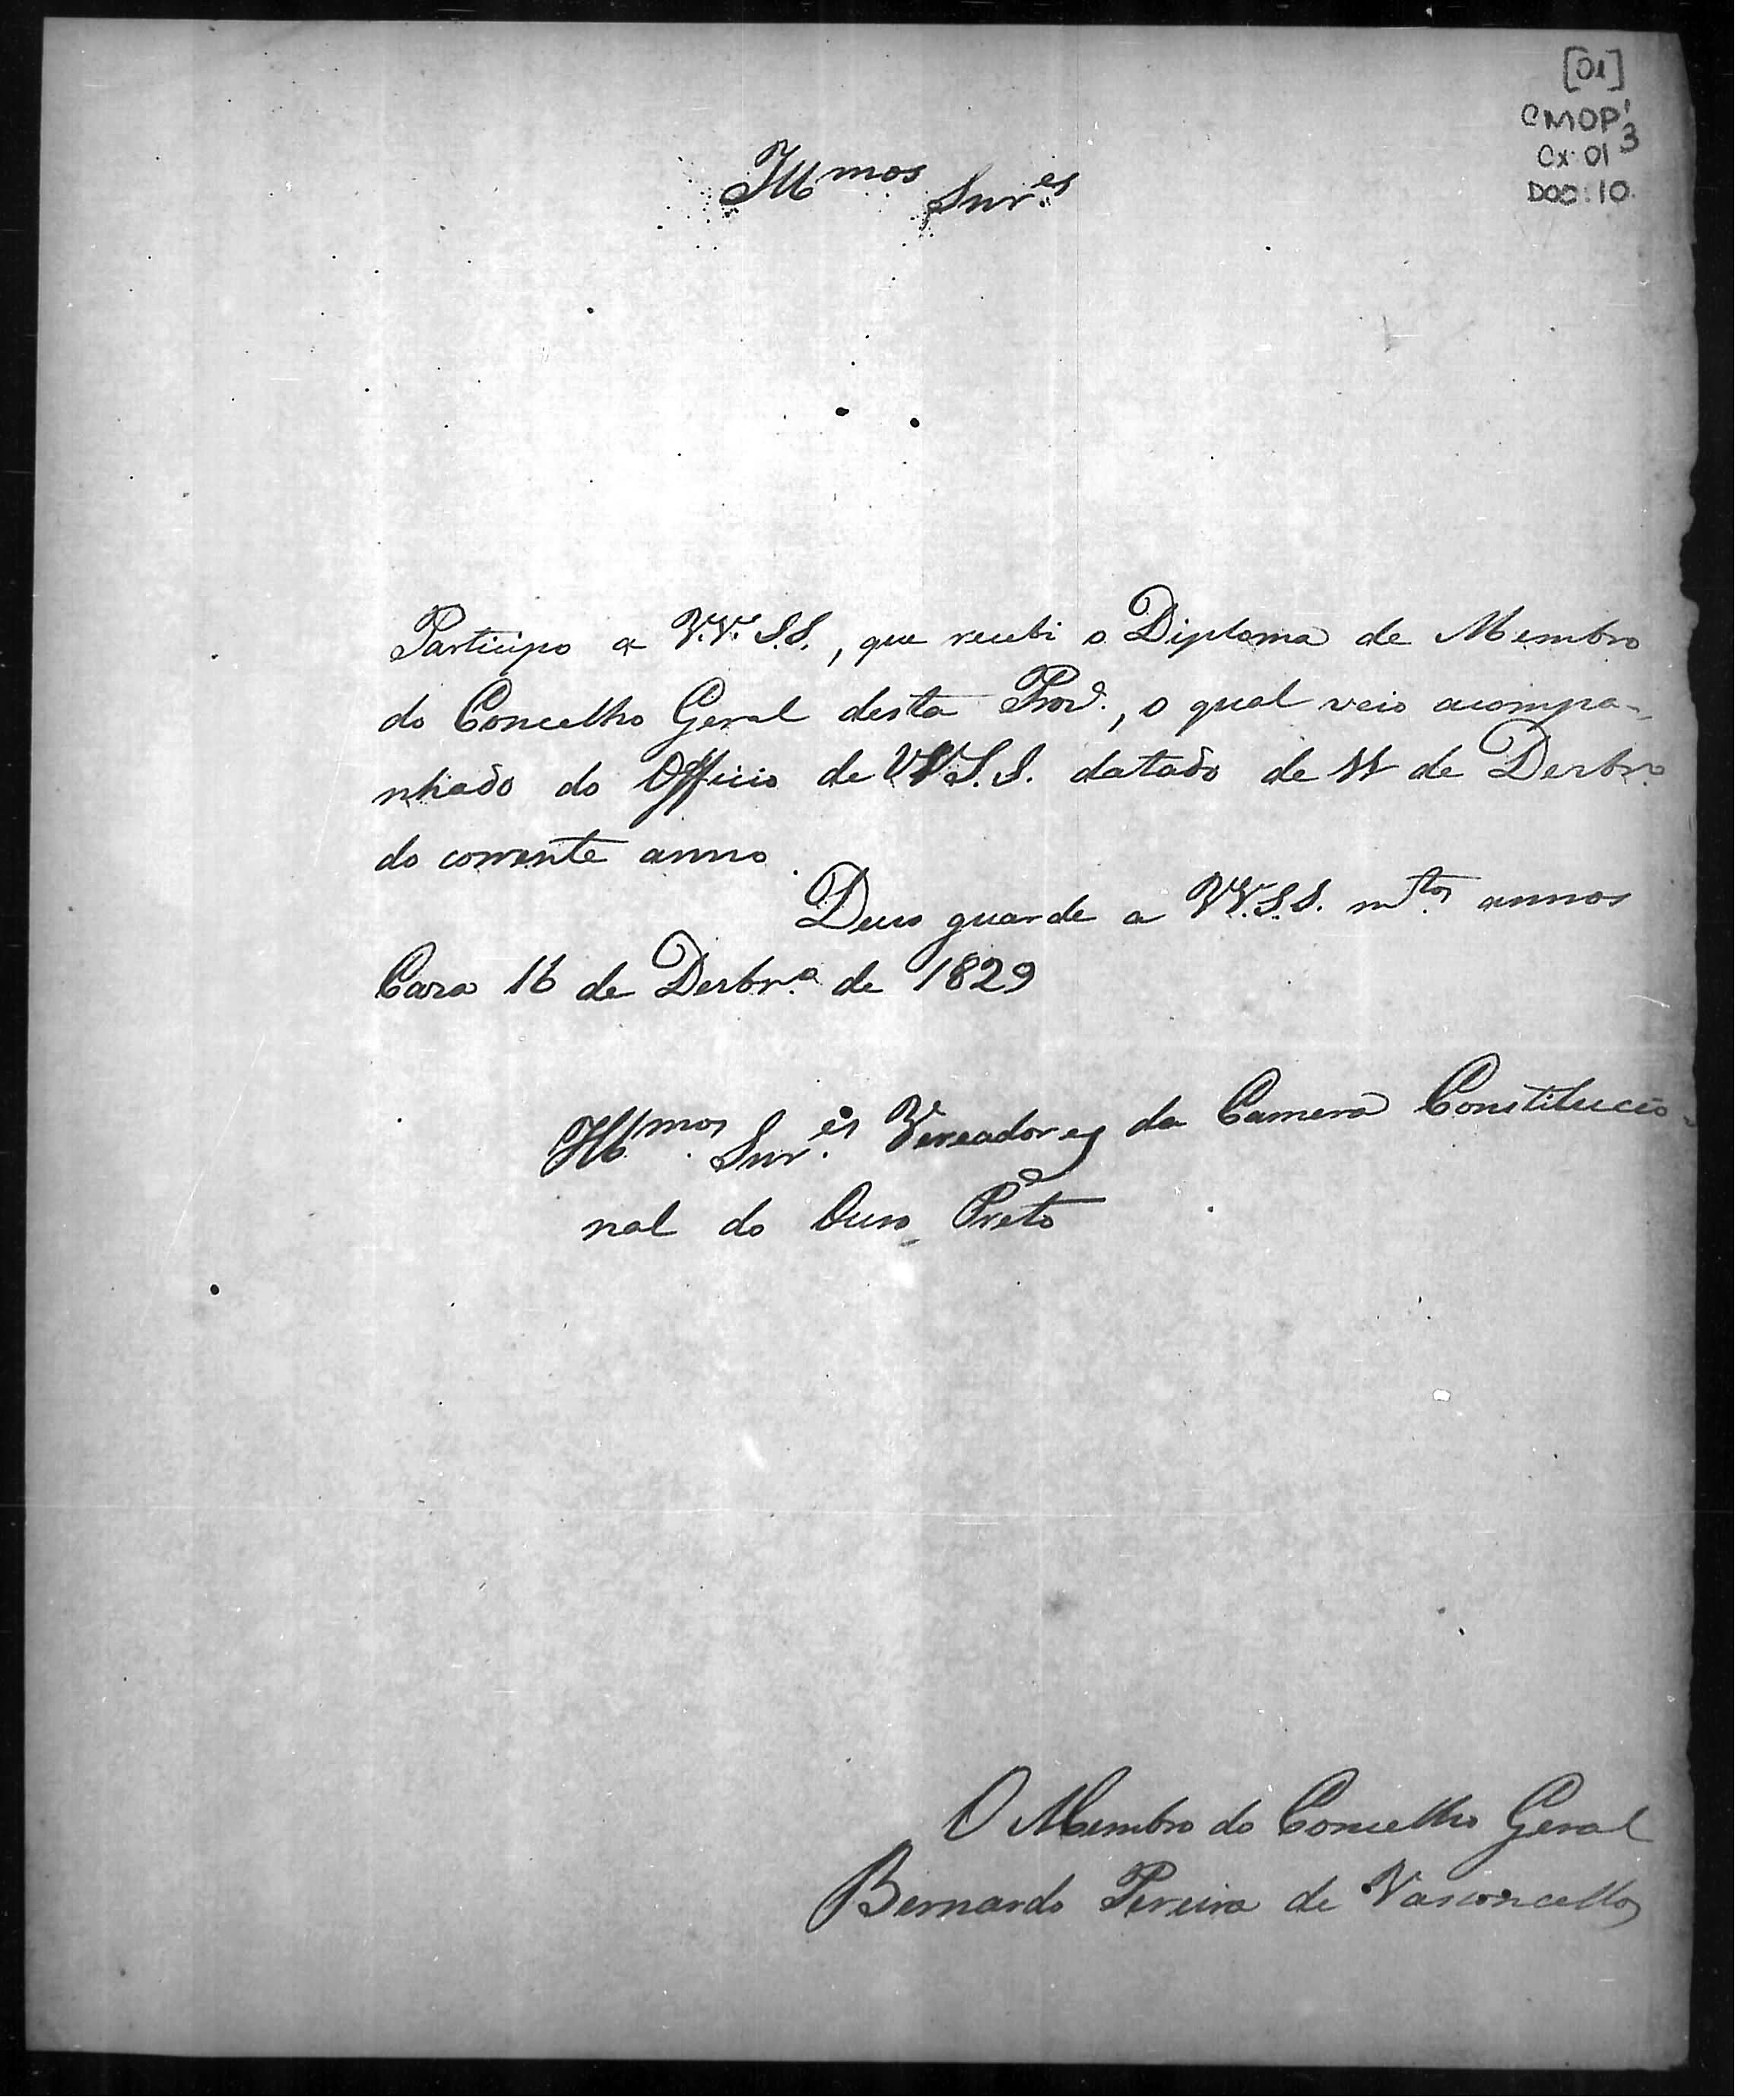 [01]
CMOP 3
Cx. 01
DOC: 10.
Illmos Snres
Participo a V.V. S.S., que recebi o Diploma de Membro
do Concelho Geral desta Prov.ª, o qual veio acompa-
nhado do Officio de VVS.S. datado de 11 de Dezbrº
do corrente anno.
Deus guarde a VV.S.S. mtos annos
Caza 16 de Dezbrº de 1829
Illmos Snr.es Vereadores da Camera Constitucio-
nal do Ouro Preto
O Membro do Concelho Geral
Bernardo Pereira de Vasconcellos